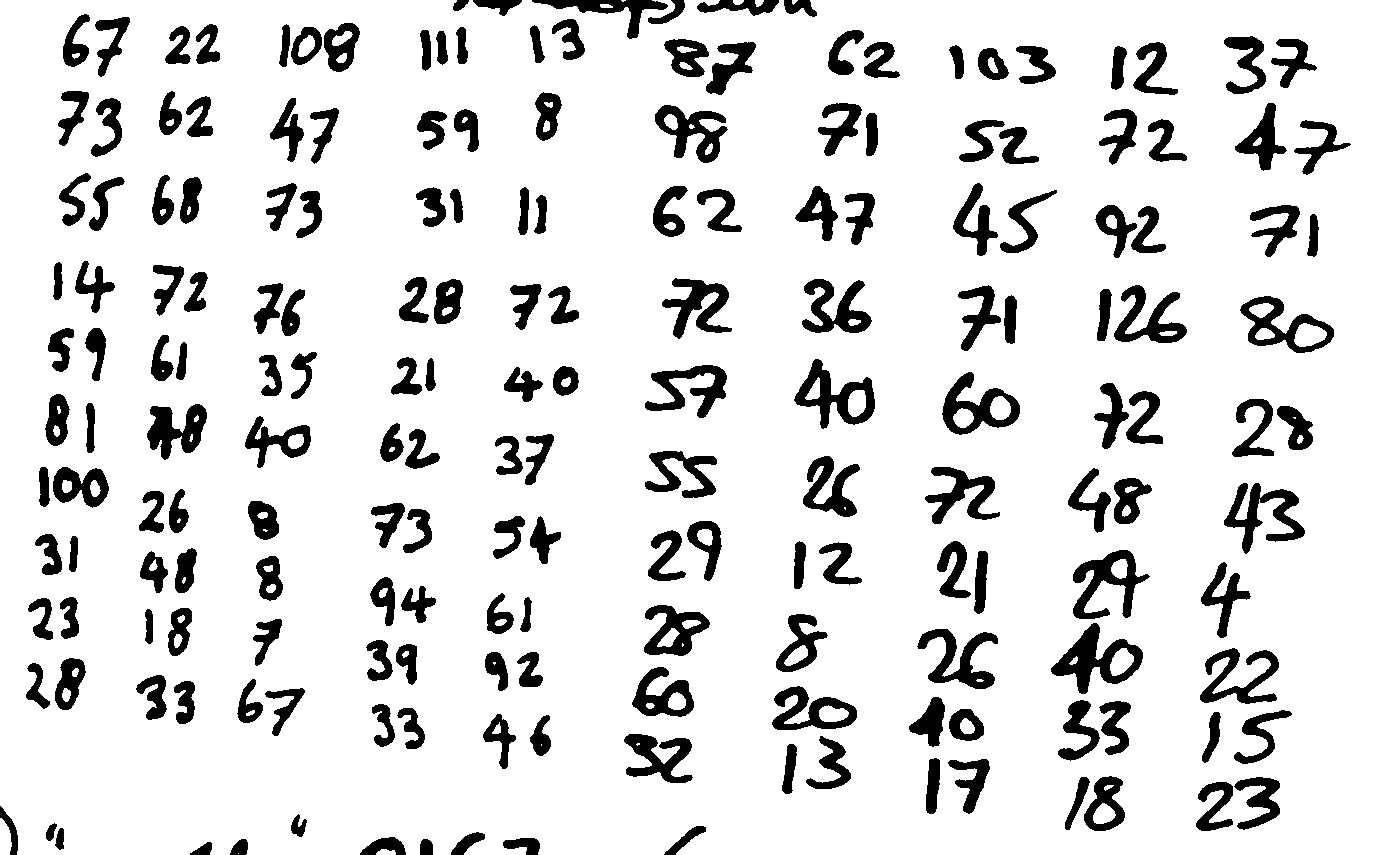 67 22 108 111 13 87 62 103 12 37
73 62 47 59 8 98 71 52 72 47
55 68 73 31 11 62 47 45 92 71
14 72 76 28 72 72 36 71 126 80
59 61 35 21 40 57 40 60 72 28
81 48 40 62 37 55 26 72 48 43
100 26 8 73 54 29 12 21 29 4
31 48 8 94 61 28 8 26 40 22
23 18 7 39 92 60 20 40 33 15
28 33 67 33 46 32 13 17 18 23